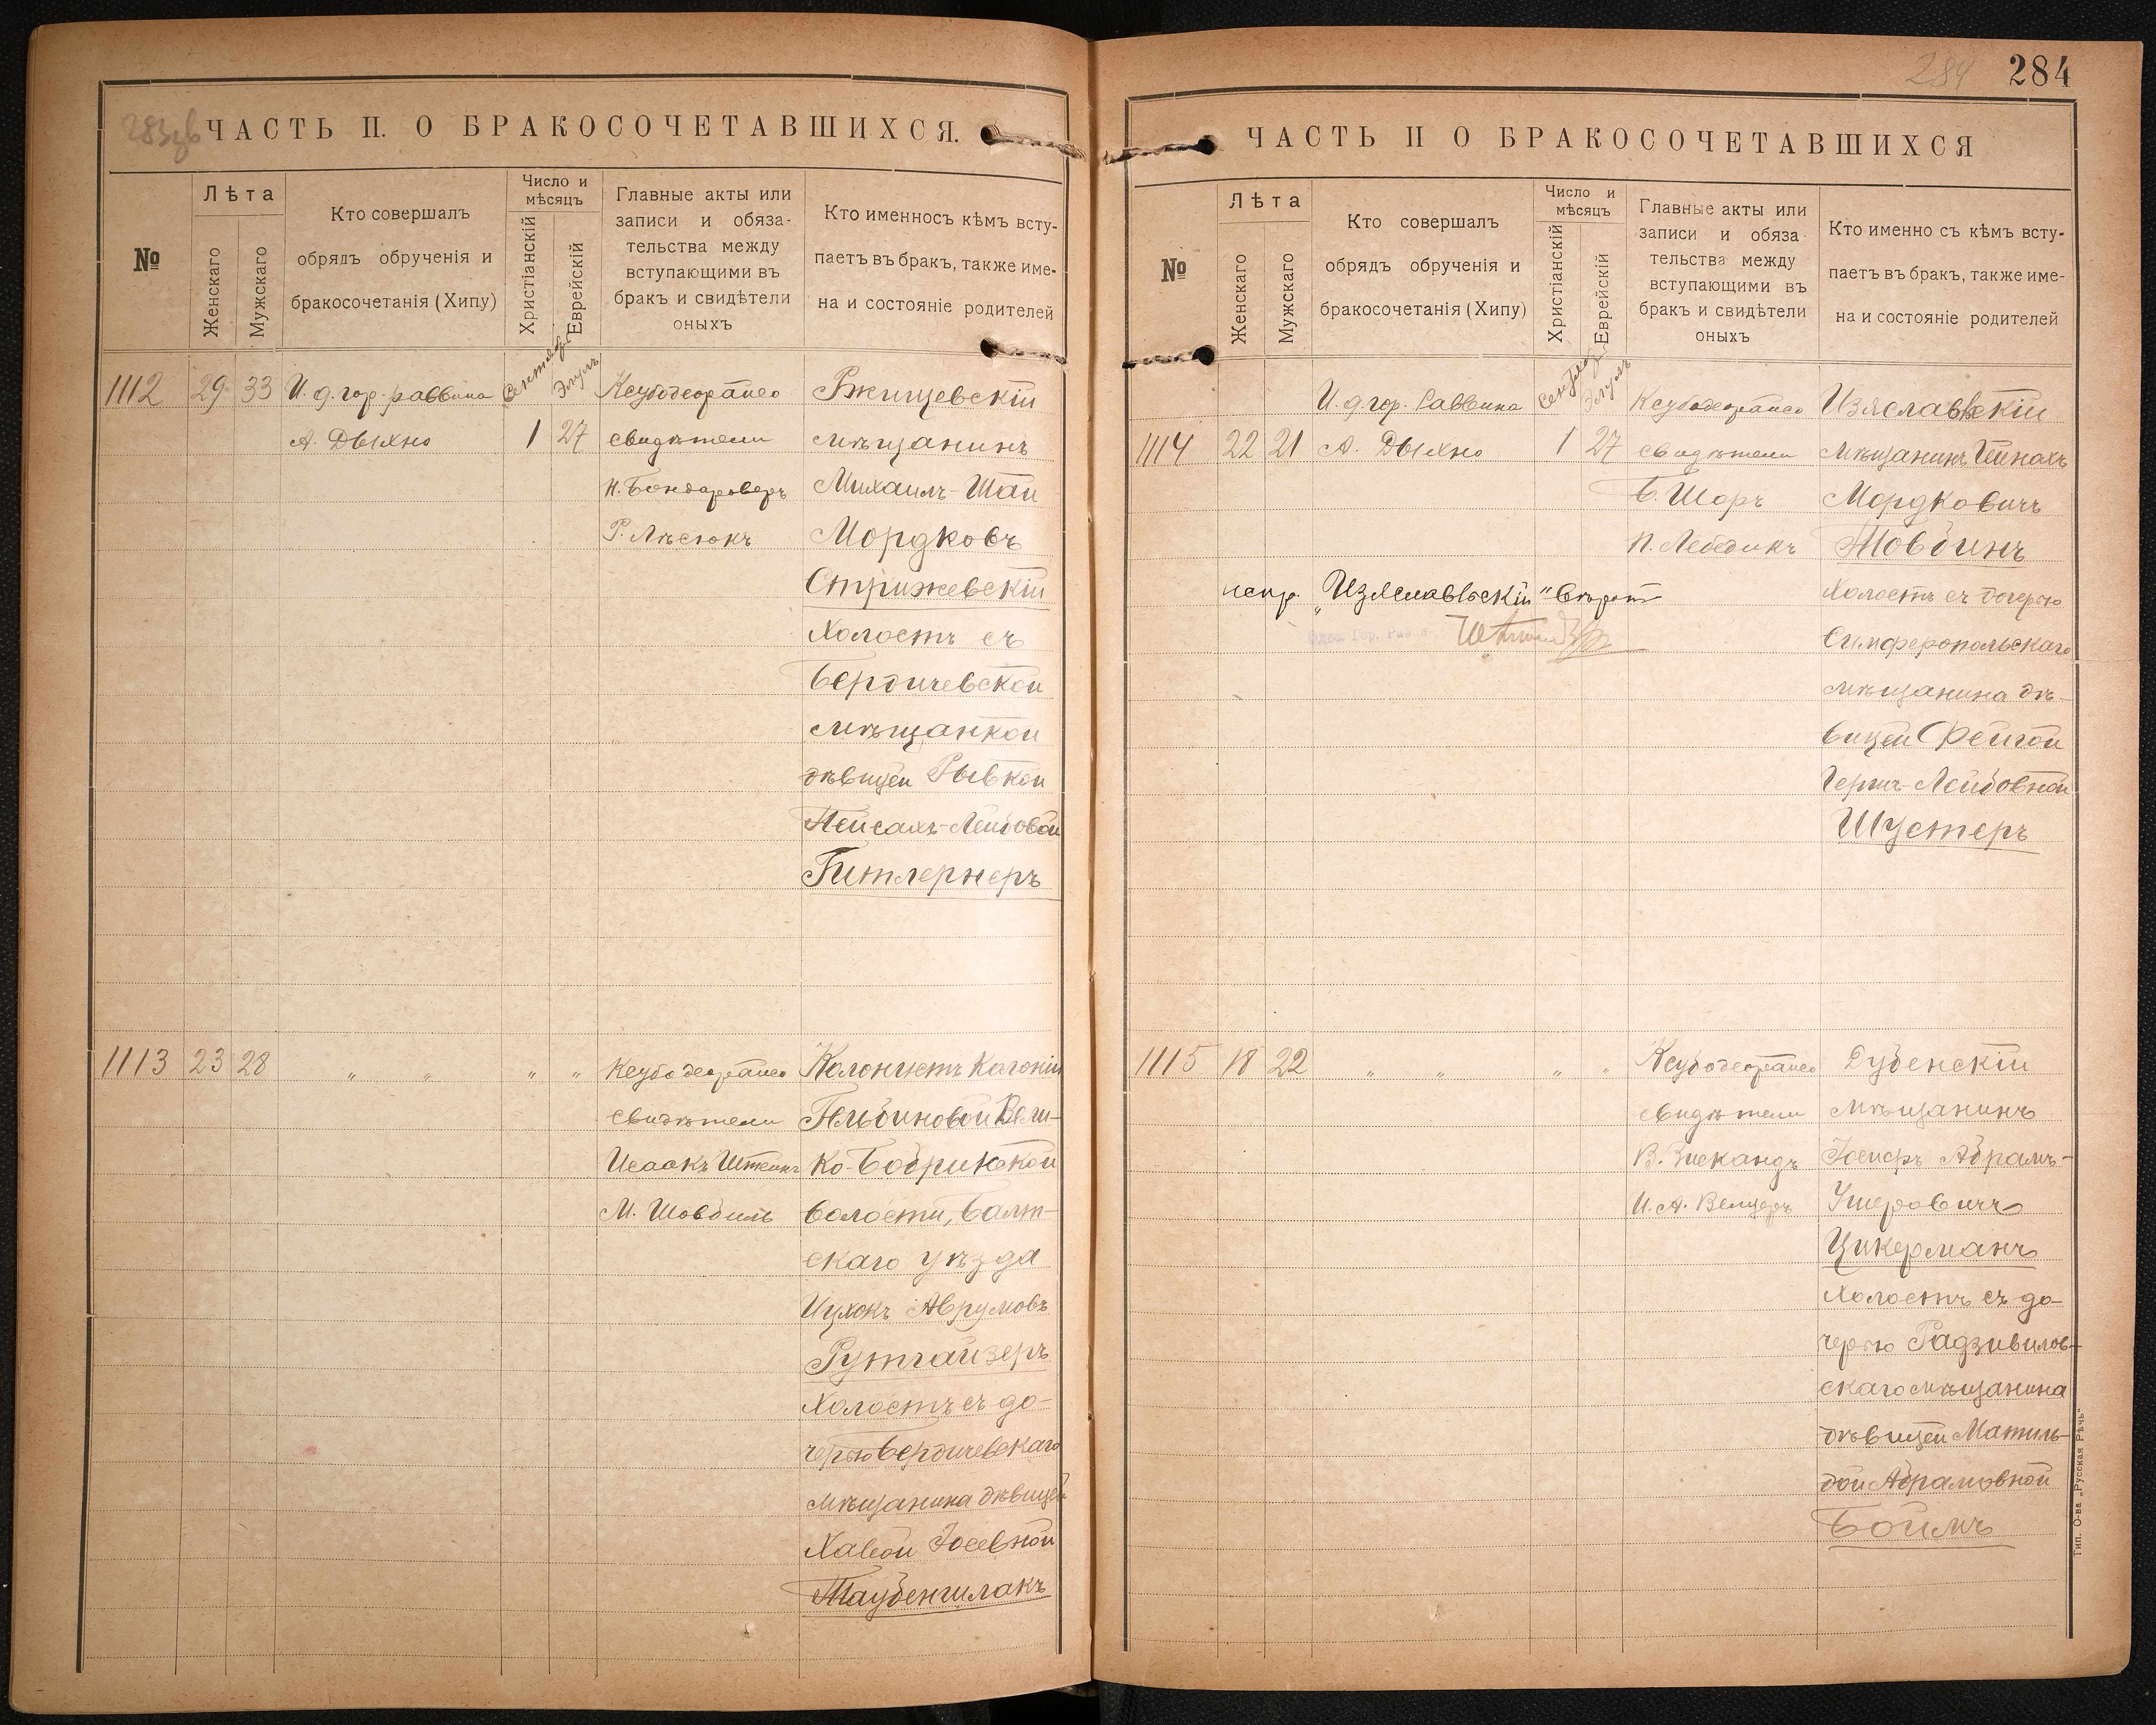 ЧАСТЬ II. О БРАКОСОЧЕТАВШИХСЯ.
№
Лѣта
Женскаго
Мужскаго
Кто совершалъ
обрядъ обрученія и
бракосочетанія (Хипу)
Число и
мѣсяцъ
Христіанскій
Еврейскій
Главные акты или
записи и обяза-
тельства между
вступающими въ
бракъ и свидѣтели
оныхъ
Кто именносъ кѣмъ всту-
паетъ въ бракъ, также име-
на и состояніе родителей
1112 29 33 И. д. гор. раввина
А. Дыхно
Элулъ
1 27
свидѣтели
Н. Бендароверъ
Р. Лѣсюкъ
Ржищевскій
мѣщанинъ
Михаилъ-Шая
Мордковъ
Стрижевскій
Холостъ съ
Бердичевской
мѣщанкой
дѣвицей Рывкой
Пейсахъ-Лейбовой
Гитлернеръ
1113 23 28 „ „ „ „
свидѣтели
Исаакъ Штейнъ
М. Шовбиль
Колонистъ Колоніи
Вели-
ко-Бобринской
волости, Балт-
скаго уѣзда
Ицхокъ Аврумовъ
Рутгайзеръ
Холостъ съ до-
черью Бердичевскаго
мѣщанина дѣвицей
Хавой Іосевной
Таубеншлакъ
284
284
ЧАСТЬ II О БРАКОСОЧЕТАВШИХСЯ
№
Лѣта
Женскаго
Мужскаго
Кто совершалъ
обрядъ обрученія и
бракосочетанія (Хипу)
Число и
мѣсяцъ
Христіанскій
Еврейскій
Главные акты или
записи и обяза
тельства между
вступающими въ
бракъ и свидѣтели
оныхъ
Кто именно съ кѣмъ всту-
паетъ въ бракъ, также име-
на и состояніе родителей
И. д. гор. Раввина
Элулъ
1114 22 21 А. Дыхно 1 27
свидѣтели
Б. Шоръ
П. Лебедикъ
Изяславльскій
мѣщанинъ Гейнахъ
Мордковичъ
Товбинъ
Холостъ съ дочерью
Симферопольскаго
мѣщанина дѣ-
вицей Фейгой
Гершъ-Лейбовной
Шустеръ
испр. „Изяславльскій“ Вѣрно
1115 18 22 „ „ „ „
свидѣтели
В. Зискандъ
И. А. Велцеръ
Дубенскій
мѣщанинъ
Іосифъ Абрамъ-
Ушеровичъ
Цукерманъ
Холостъ съ до-
черью Радзивилов-
скаго мѣщанина
дѣвицей Матиль-
дой Абрамовной
Боймъ
Тип. О-ва „Русская Рѣчь“